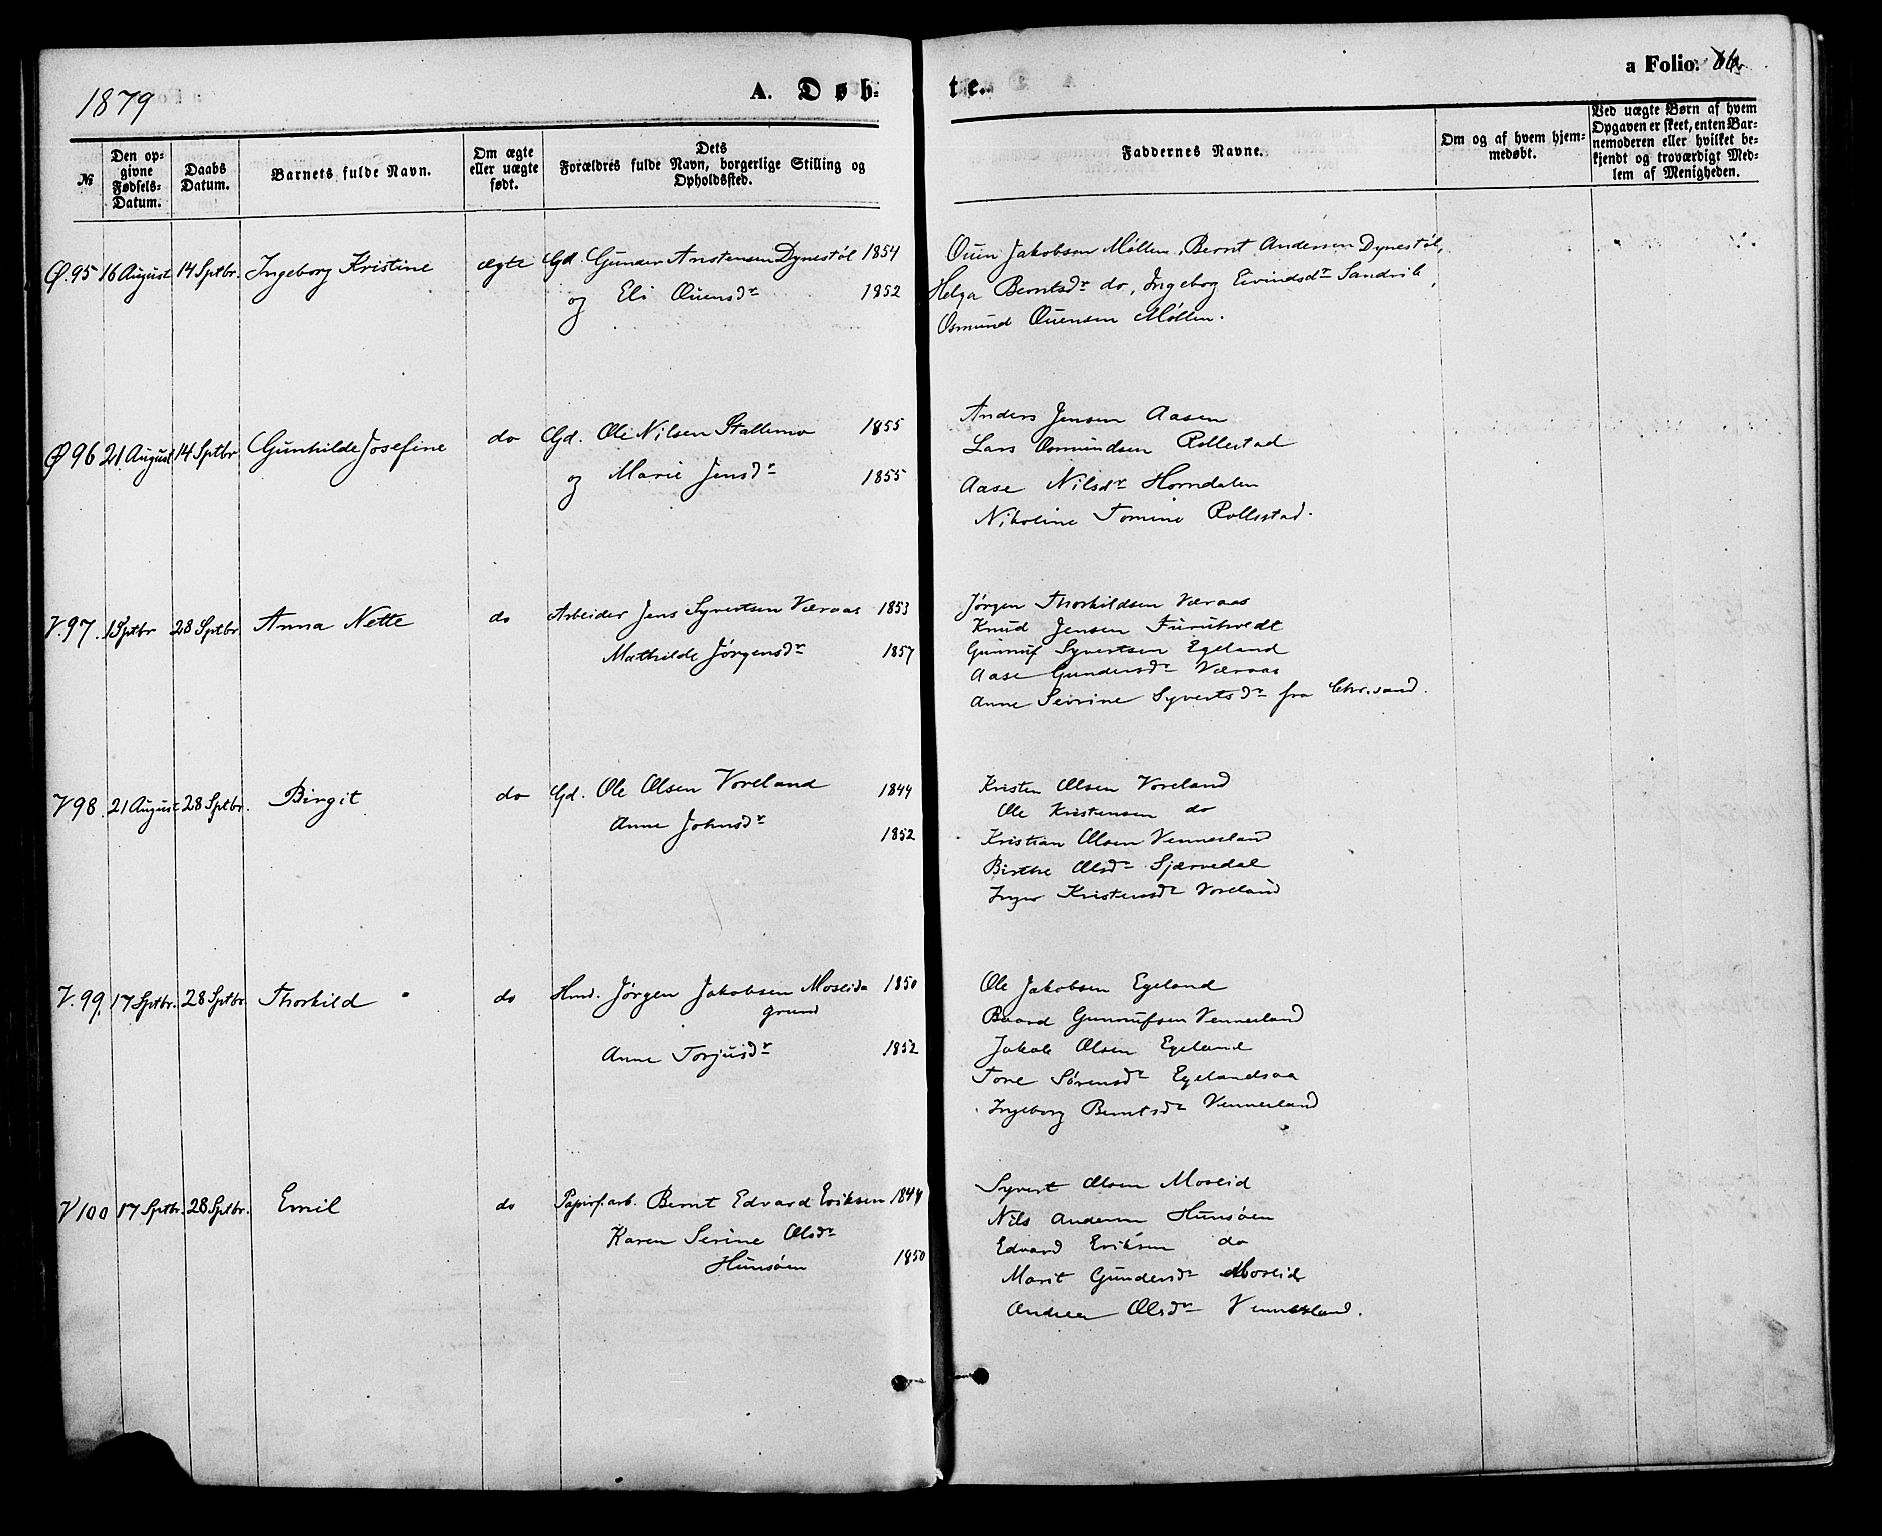 1879
A. Døb-
te.
a Folio.
№
Den op-
givne
Fødsels-
Datum.
Daabs
Datum.
Barnets fulde Navn.
Om ægte
eller uægte
født.
Dets
Forældres fulde Navn, borgerlige Stilling og
Opholdssted.
Faddernes Navne.
Om og af hvem hjem-
medøbt.
Ved uægte Børn af hvem
Opgaven er skeet, enten Bar-
nemoderen eller hvilket be-
kjendt og troværdigt Med-
lem af Menigheden.
Ø.95 16 August 14 Sptbr. Ingeborg Kristine ægte Gd. Gunder Anstensen Dynestøl 1854
og Eli Ouensdr 1852
Ouen Jakobsen Møllen, Bernt Andersen Dynestøl,
Helga Berntsdr do, Ingeborg Eivindsdr Sandrib,
Osmund Ouensen Møllen.
Ø 96 21 August 14 Sptbr. Gunhilde Josefine do Gd. Ole Nilsen Stallemo 1855
og Marie Jensdr 1855
Anders Jensen Aasen
Lars Osmundsen Rollestad
Aase Nilsdr Horndalen
Nikoline Tomine Rollestad.
V.97. 1 Sptbr 28 Sptbr. Anna Nette do Arbeider Jens Syvertsen Væraas 1853
Mathilde Jørgensdr 1857
Jørgen Thorkildsen Væraas
Knud Jensen Furuholdt
Gunnuf Syvertsen Egeland
Aase Gundersdr Væraas
Anne Sevrine Syvertsdr fra Chr.sand.
V98. 21 August 28 Sptbr. Birgit do Gd. Ole Olsen Voreland 1844
Anne Johnsdr 1852
Kristen Olsen Voreland
Ole Kristensen do
Kristian Olsen Venneland
Birthe Olsdr Sjærvedal
Inger Kristensdr Voreland
V.99. 17 Sptbr. 28 Sptbr. Thorkild do Hmd. Jørgen Jakobsen Moseida 1850
grund
Anne Torjusdr 1852
Ole Jakobsen Egeland
Baard Gunnufsen Venneland
Jakob Olsen Egeland
Tone Sørensdr Egelandsaa
Ingeborg Berntsdr Venneland
V100 17 Sptbr. 28 Sptbr. Emil do Papirf.arb. Bernt Edvard Eriksen 1844
Karen Serine Olsdr
Hunsøen 1850
Syvert Olsen Moseid
Nils Andersen Hunsøen
Edvard Eriksen do
Marit Gundersdr Moseid
Andrea Olsdr Vennesland.